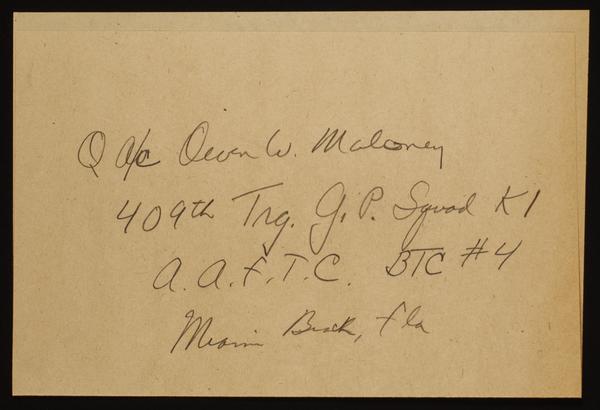 Q a/c Owen W. Maloney
409th Trg. G.P. Sqvad K1
A.A.F.T.C. BTC #4
Miami Beach, Fla